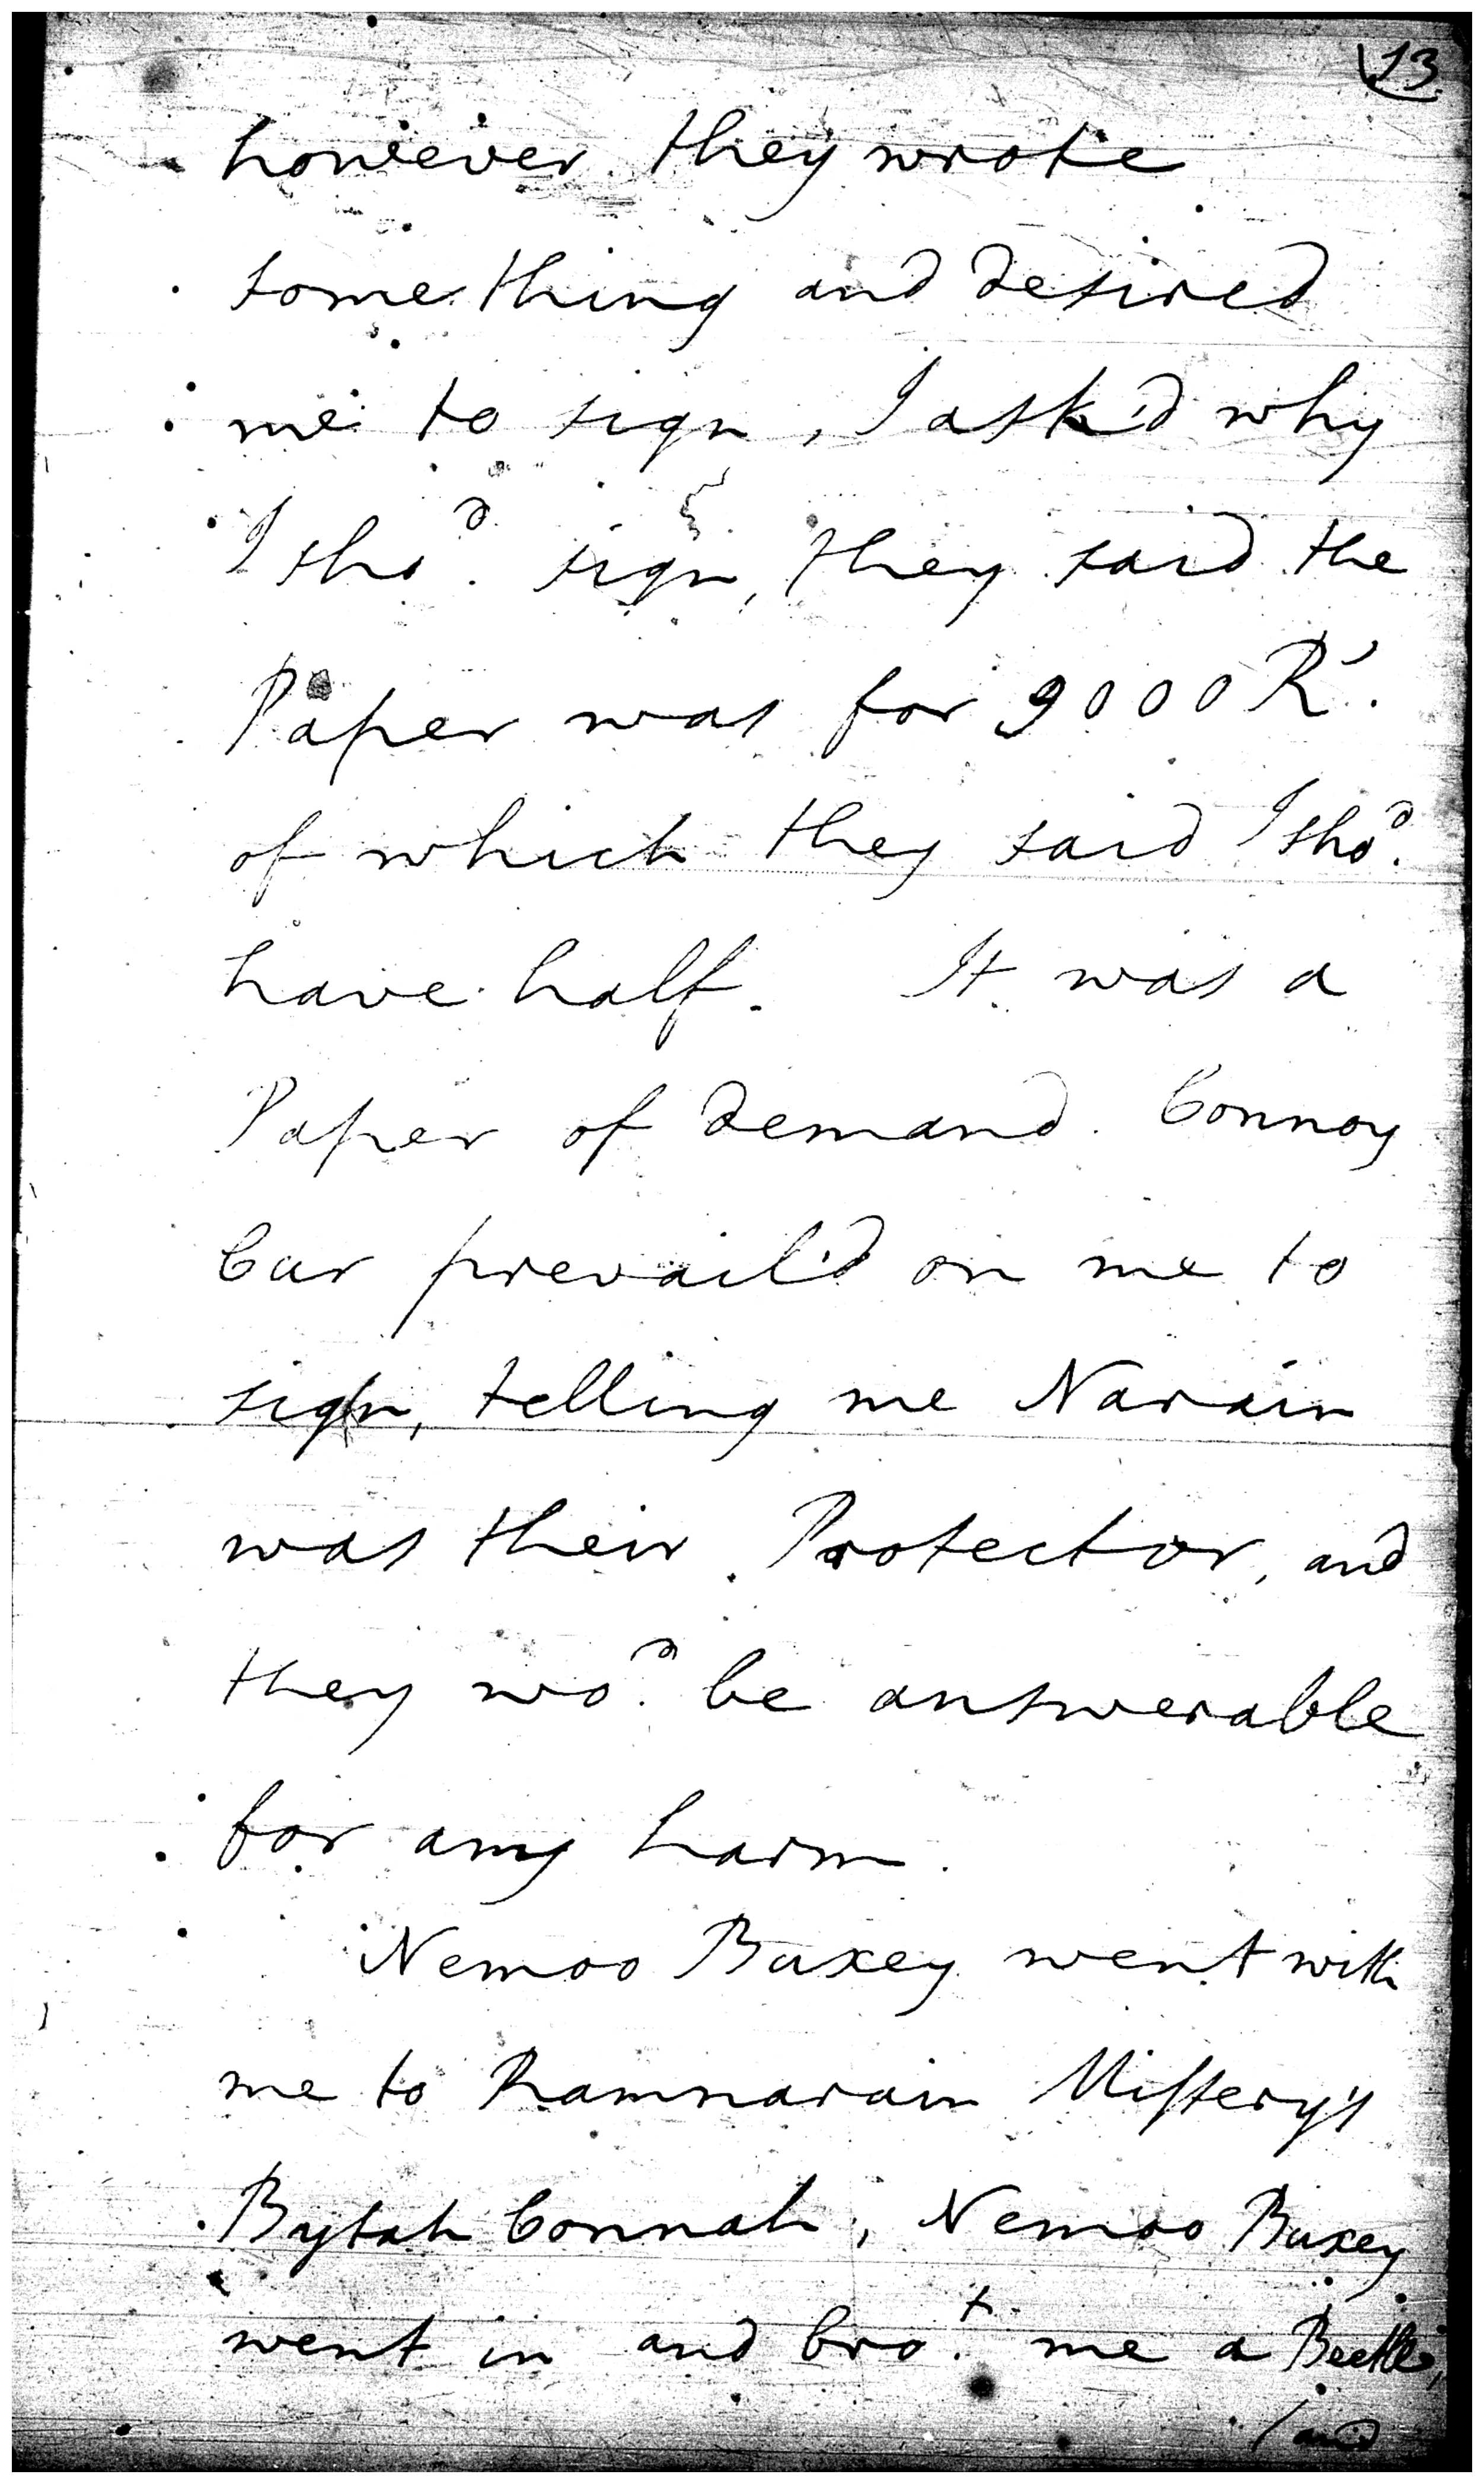 13
however they wrote
something and desired
me to sign, I ask'd why
I sho.^d sign, they said the
Paper was for 9000 R^s.
of which they said I sho.^d
have half. It was a
Paper of demand. Connoy
Cur prevail'd on me to
sign, telling me Narain
was their Protector, and
they wo.^d be answerable
for any harm.
Nemoo Buxey went with
me to Ramnarain Mistery's
Bytah Connah, Nemoo Buxey
went in and bro.^t me a Beetle,
/and